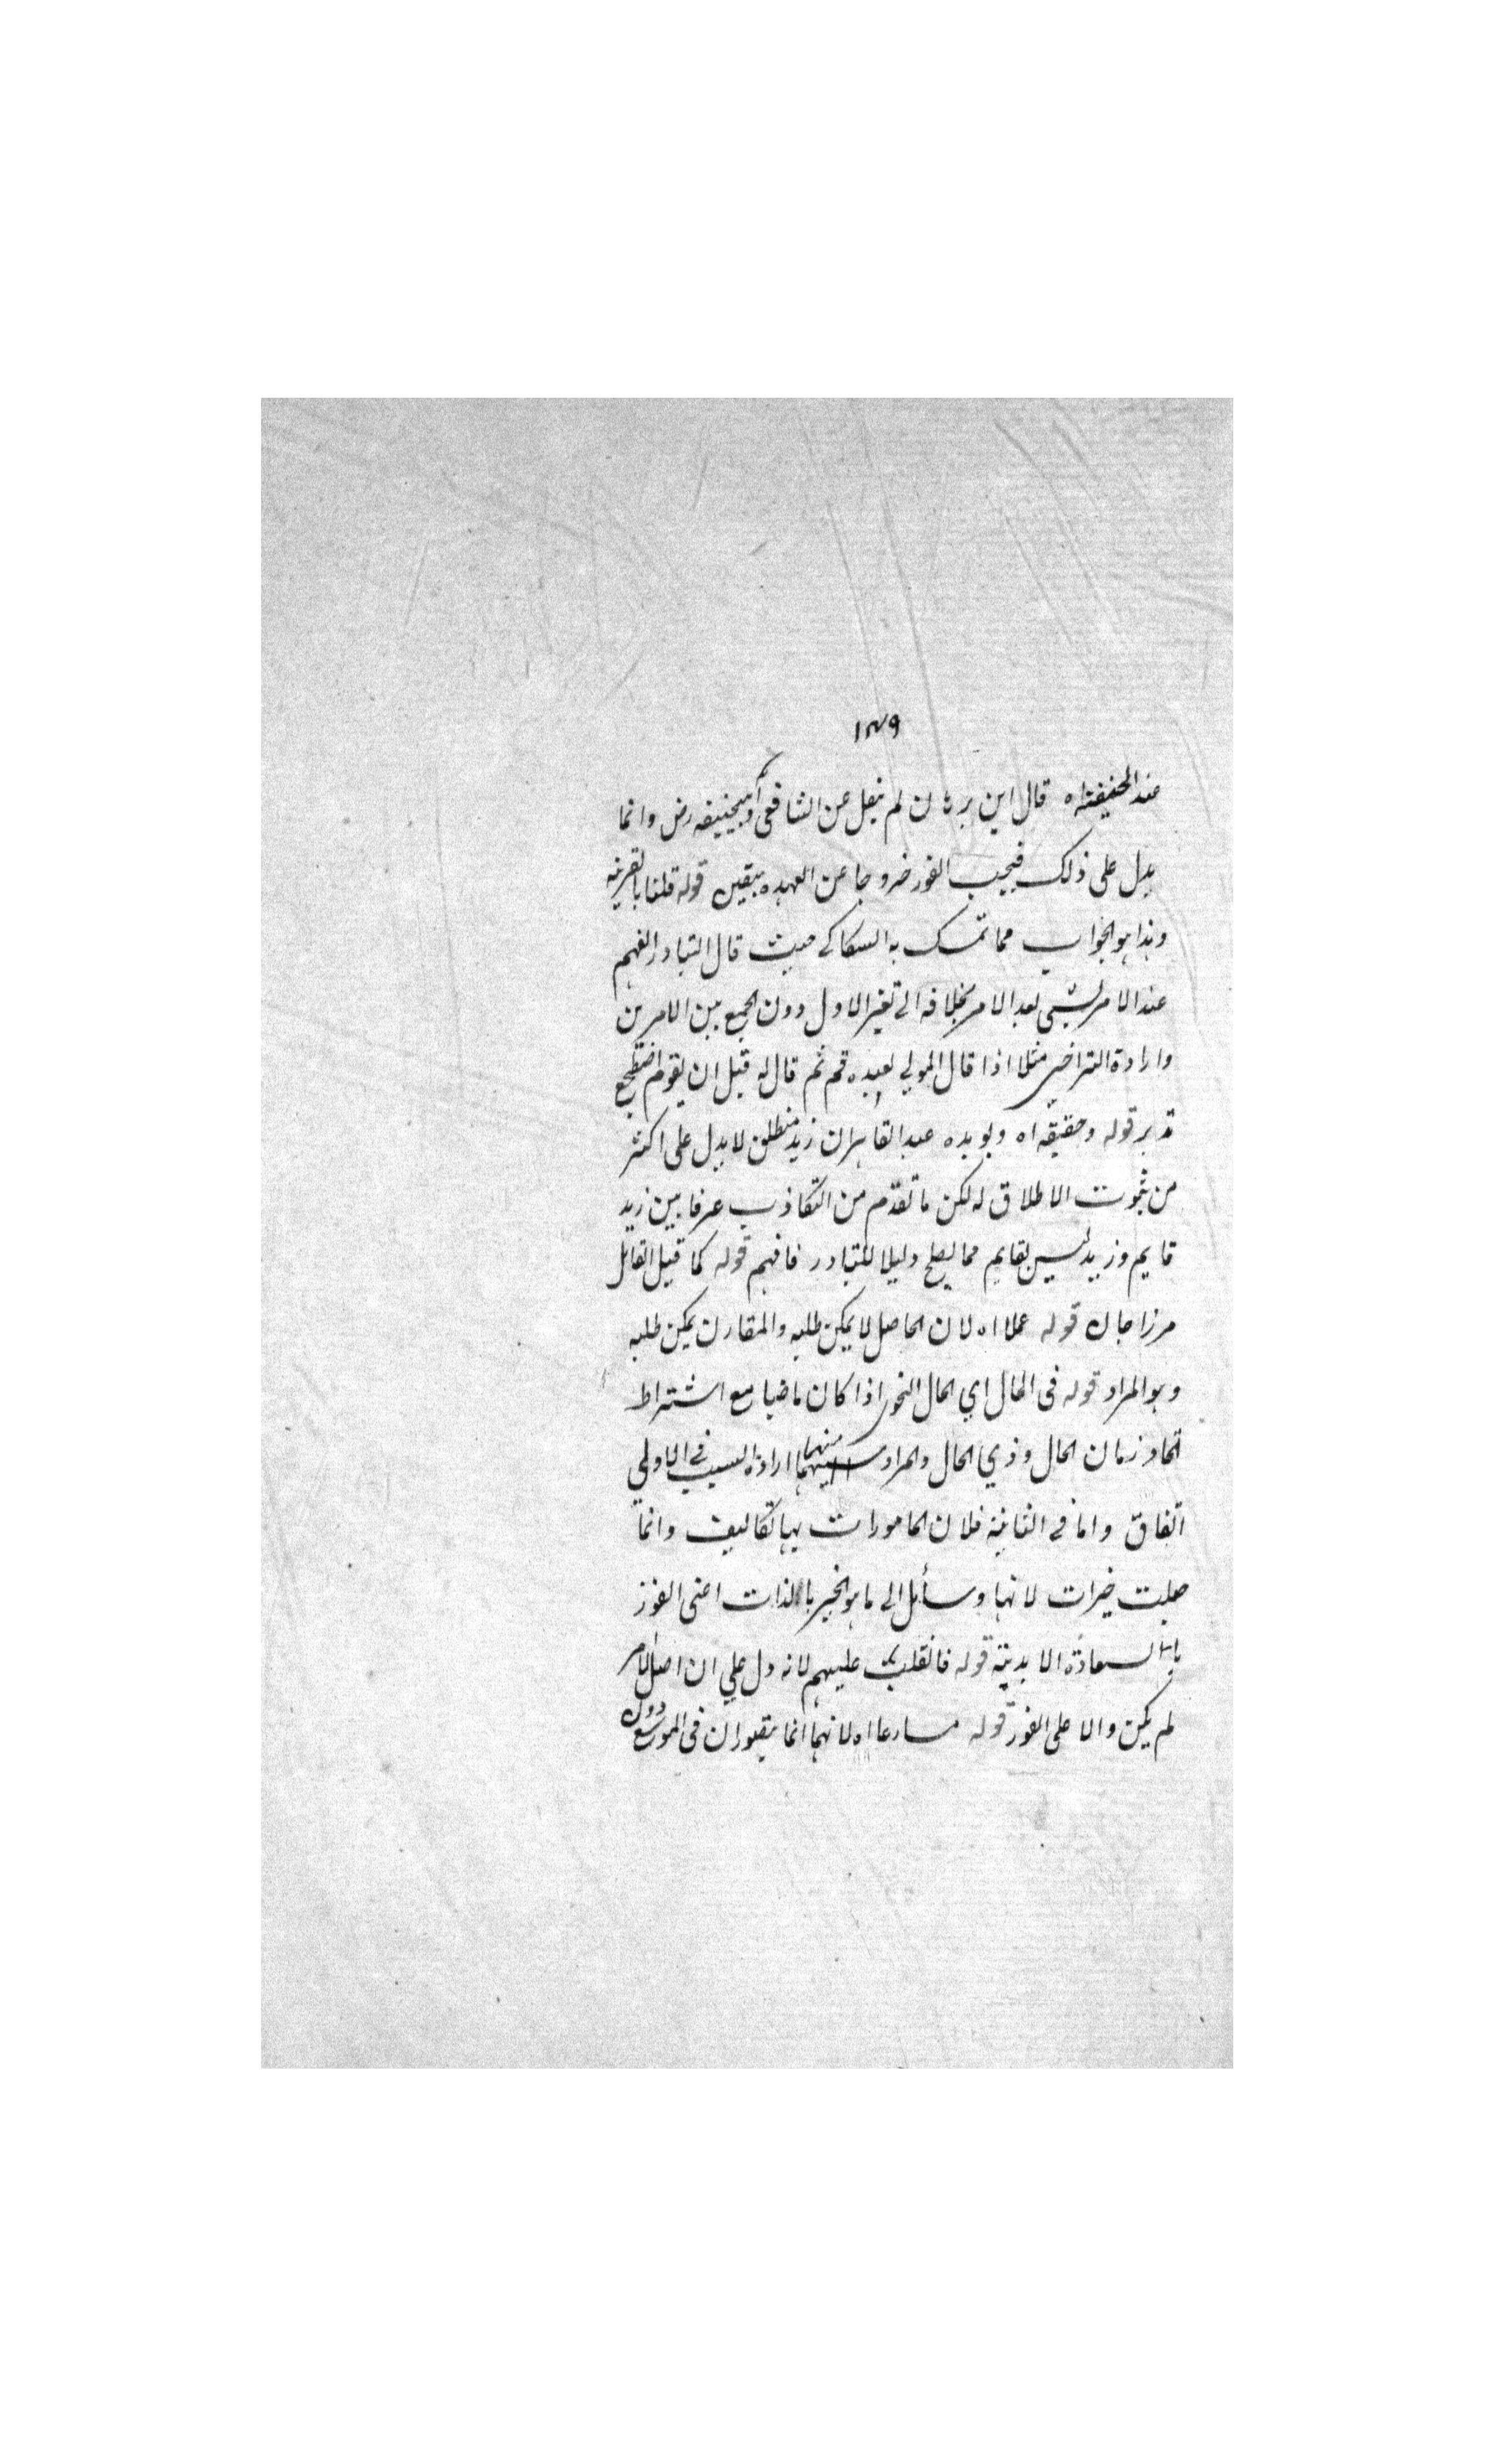 ١٣٩
عند الحنفية اه قال ابن برهان لم ينقل عن الشافعي وابيحنيفه رض وانما
يدل على ذلك فيجب الفور خروجا عن العهده بيقين قوله قلنا بالقرينه
وهذا هو الجواب مما تمسك به السكاكى حيث قال التبادر الفهم
عند الامر بشيي بعد الامر بخلافه الى تغير الاول دون الجمع بين الامرين
وارادة التراخي مثلا اذا قال المولي لعبده قم ثم قال له قبل ان يقوم اضطجع
تدبر قوله وحقيقه اه ويويده عبد القاهر ان زيد منطلق لا يدل على اكثر
من ثبوت الاطلاق له لكن ما تقدم من التكاذب عرفا بين زيد
قايم وزيد ليس بقايم مما يصلح دليلا للتبادر فافهم قوله كما قيل القائل
مرزاجان قوله عملا اه لان الحاصل لا يمكن طلبه والمقارن يمكن طلبه
وهو المراد قوله فى الحال اي الحال النحوى اذا كان ماضيا مع اشتراط
اتحاد زمان الحال وذي الحال والمراد منهما ارادة السبب فى الاولي
اتفاق واما في الثانية فلان المامورات بها تكاليف وانما
جعلت خيرات لانها وسائل الى ما هو الخير بالذات اعنى الفوز
بالسعادة الابدية قوله فانقلب عليهم لانه دل علي ان اصل الامر
لم يكن والا على الفور قوله مسارعا اه لانهما انما يتصوران فى الموسع دون